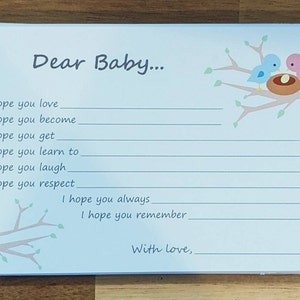 Dear Baby...
ope you love
ope you become
ope you get
ope you learn to
ope you laugh
ope you respect
I hope you always
I hope you remember
With love,